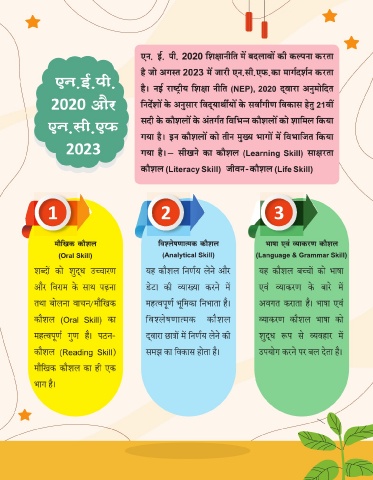 एन.ई.पी.
2020 और
एन.सी.एफ
2023
एन. ई. पी. 2020 शिक्षानीति में बदलावों की कल्पना करता
है जो अगस्त 2023 में जारी एन.सी.एफ.का मार्गदर्शन करता
है। नई राष्ट्रीय शिक्षा नीति (NEP), 2020 द्वारा अनुमोदित
निर्देशों के अनुसार विद्यार्थीयों के सर्वांगीण विकास हेतु 21वीं
सदी के कौशलों के अंतर्गत विभिन्न कौशलों को शामिल किया
गया है। इन कौशलों को तीन मुख्य भागों में विभाजित किया
गया है।– सीखने का कौशल (Learning Skill) साक्षरता
कौशल (Literacy Skill) जीवन-कौशल (Life Skill)
1
मौखिक कौशल
(Oral Skill)
शब्दों को शुद्ध उच्चारण
और विराम के साथ पढ़ना
तथा बोलना वाचन/मौखिक
कौशल (Oral Skill) का
महत्वपूर्ण गुण है। पठन-
कौशल (Reading Skill)
मौखिक कौशल का ही एक
भाग है।
2
विश्लेषणात्मक कौशल
(Analytical Skill)
यह कौशल निर्णय लेने और
डेटा की व्याख्या करने में
महत्वपूर्ण भूमिका निभाता है।
विश्लेषणात्मक कौशल
द्वारा छात्रों में निर्णय लेने की
समझ का विकास होता है।
3
भाषा एवं व्याकरण कौशल
(Language & Grammar Skill)
यह कौशल बच्चों को भाषा
एवं व्याकरण के बारे में
अवगत कराता है। भाषा एवं
व्याकरण कौशल भाषा को
शुद्ध रूप से व्यवहार में
उपयोग करने पर बल देता है।